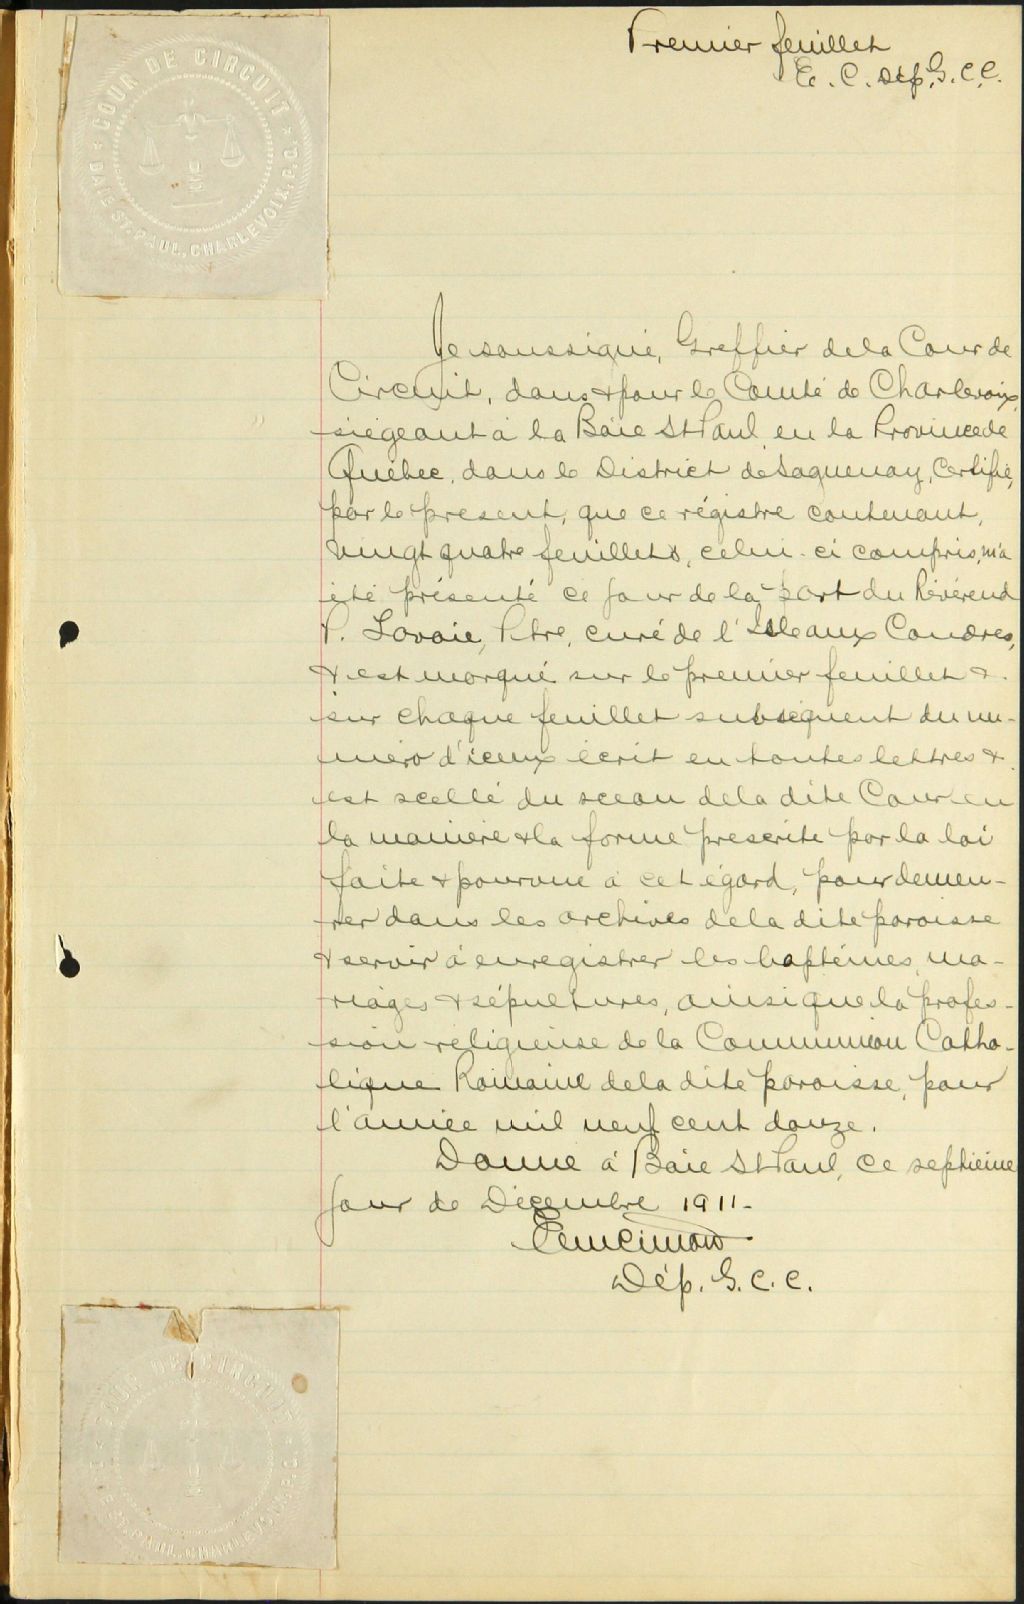 Premier feuillet
E. C. Dép. G. C. C.
COUR DE CIRCUIT
BAIE ST. PAUL, CHARLEVOIX, P.Q.
Je soussigné, Greffier de la Cour de
Circuit, dans & pour le Comté de Charlevoix,
siégeant à la Baie St Paul, en la Province de
Québec, dans le District de Saguenay, Certifie,
par le present, que ce régistre contenant,
vingt quatre feuillets, celui-ci compris, m'a
été présenté ce jour de la part du Révérend
P. Lavoie, Ptre, curé de l'Isle aux Coudres,
& est marqué sur le premier feuillet &
sur chaque feuillet subséquent du nu-
méro d'iceux écrit en toutes lettres &
est scellé du sceau de la dite Cour en
la manière & la forme prescrite par la loi
faite & pourvue à cet égard, pour demeu-
rer dans les archives de la dite paroisse
& servir à enregistrer les baptêmes, ma-
riages & sépultures, ainsi que la profes-
sion religieuse de la Communion Catho-
lique Romaine de la dite paroisse, pour
l'année mil neuf cent douze.
Donné à Baie St Paul, ce septième
jour de Décembre 1911-
Dép. G. C. C.
COUR DE CIRCUIT
BAIE ST. PAUL, CHARLEVOIX, P.Q.